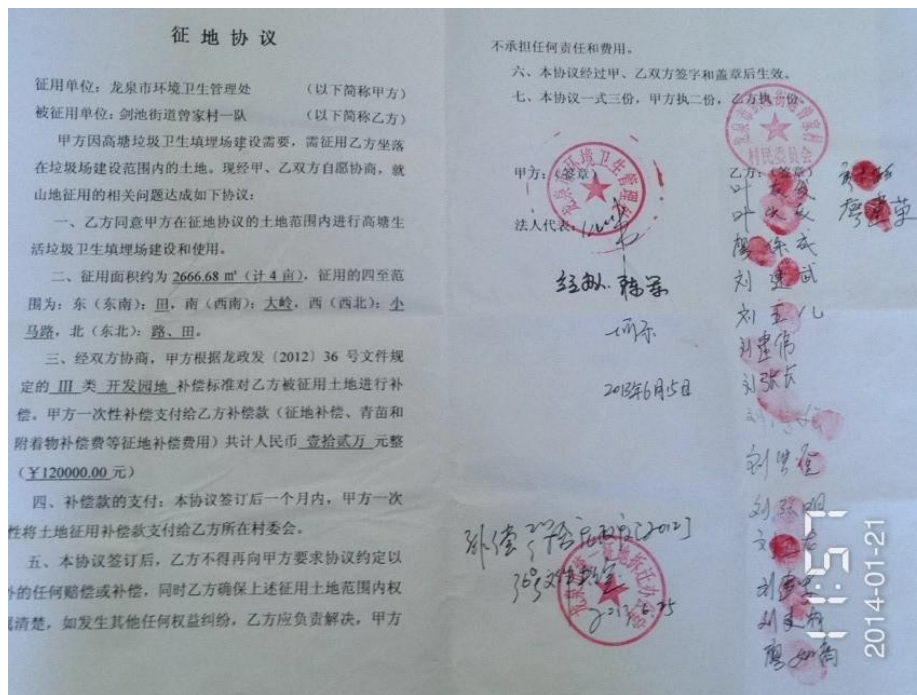 征地协议
征用单位：龙泉市环境卫生管理处 （以下简称甲方）
被征用单位：剑池街道曾家村一队 （以下简称乙方）
甲方因高塘垃圾卫生填埋场建设需要，需征用乙方坐落
在垃圾场建设范围内的土地。现经甲、乙双方自愿协商，就
山地征用的相关问题达成如下协议：
一、乙方同意甲方在征地协议的土地范围内进行高塘生
活垃圾卫生填埋场建设和使用。
二、征用面积约为 2666.68 ㎡（计 4 亩），征用的四至范
围为：东（东南）：田，南（西南）：大岭，西（西北）：小
马路，北（东北）：路、田。
三、经双方协商，甲方根据龙政发〔2012〕36 号文件规
定的 III 类 开发园地 补偿标准对乙方被征用土地进行补
偿。甲方一次性补偿支付给乙方补偿款（征地补偿、青苗和
附着物补偿费等征地补偿费用）共计人民币 壹拾贰万 元整
（¥120000.00 元）
四、补偿款的支付：本协议签订后一个月内，甲方一次
性将土地征用补偿款支付给乙方所在村委会。
五、本协议签订后，乙方不得再向甲方要求协议约定以
外的任何赔偿或补偿，同时乙方确保上述征用土地范围内权
属清楚，如发生其他任何权益纠纷，乙方应负责解决，甲方
不承担任何责任和费用。
六、本协议经过甲、乙双方签字和盖章后生效。
七、本协议一式三份，甲方执二份，乙方执一份。
甲方：（签章）
龙泉市环境卫生管理
法人代表：
2013年6月15日
乙方：（签章）
曾家村
村民委员会
叶
叶
廖
刘建武
刘玉儿
刘建伟
刘张长
刘
刘
刘张明
刘
刘
廖如高
廖建革
补偿
[2012]
36号文件
征地拆迁办
11:57
2014-01-21